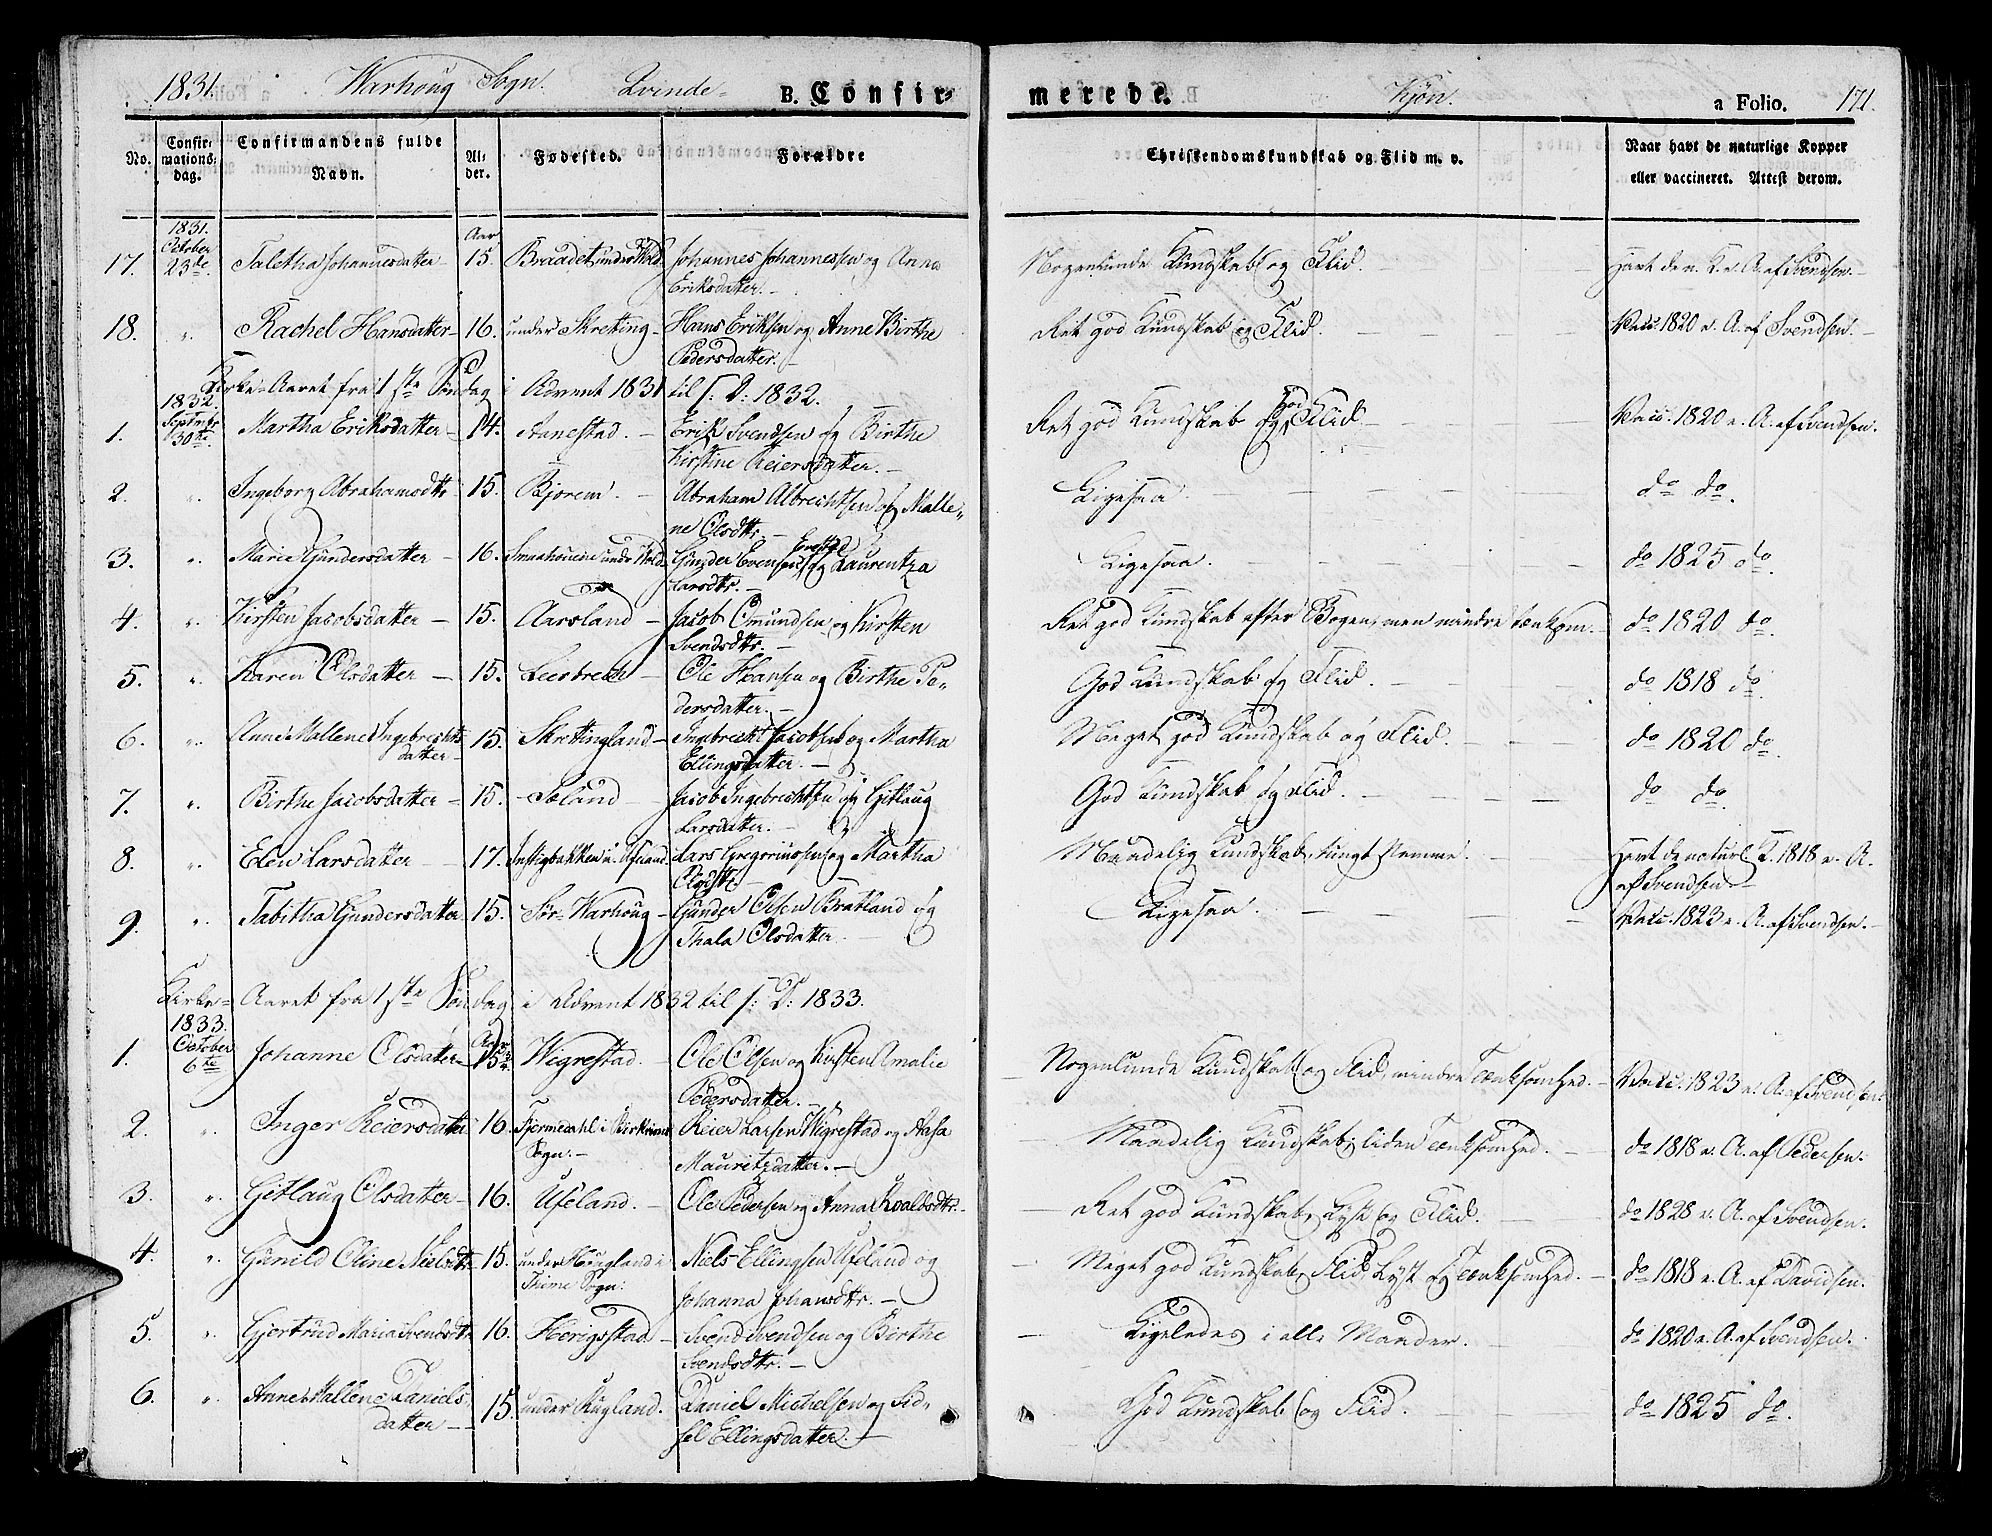 1831. Warhoug Sogn. Qvinde- B. Confirmerede. Kjøn. a Folio. 171.
No. Confirmationsdag. Confirmandens fulde Navn. Alder. Fødested. Forældre Christendomskundskab og Flid m. v. Naar havt de naturlige Kopper eller vaccineret. Attest derom.
1831. Aar
17. October 23de Taletha Johannesdatter 15. Braadet under Hold. Johannes Johannessen og Anna Nogenlunde Kundskab og Flid. Havt de n. K. v. A. af Svendsen.
Eriksdatter.
18. " Rachel Hansdatter 16. under Skretting Hans Eriksen og Anne Birthe Ret god Kundskab og Flid. Vacc. 1820 v. A. af Svendsen.
Pedersdatter.
Kirke-Aaret fra 1ste Søndag i Advent 1831 til s: D: 1832.
1832.
1. Septmbr 30te Martha Eriksdatter 14. Aanestad. Erik Svendsen og Birthe Ret god Kundskab og god Flid. Vacc. 1820 v. A. af Svendsen.
Kirstine Reiersdatter.
2. " Ingeborg Abrahamsdtr 15. Bjorem. Abraham Albrechtsen og Malle- Ligesaa. do do.
ne Olsdtr.
3. " Maria Gundersdatter 16. Gunder Evensen og Laurentza Ligesaa. do 1825 do.
Larsdtr.
4. " Kirsten Jacobsdatter 15. Aarsland Jacob Omundsen og Kirsten Ret god Kundskab efter Bogen, men mindre tænksom. do 1820 do.
Svendsdtr.
5. " Karen Olsdatter 15. Leersbrech Ole Hansen og Birthe Pe- God Kundskab og Flid. do 1818 do.
dersdatter.
6. " Anne Mallene Ingebrechts 15. Skrettingland Ingebrecht Jacobsen og Martha Meget god Kundskab og Flid. do 1820 do.
datter Ellingsdatter.
7. " Birthe Jacobsdatter 15. Soland Jacob Ingebrechtsen og Gitlaug God Kundskab og Flid. do do.
Larsdatter.
8. " Elen Larsdatter 17. Lars Gregoriusen og Martha Maadelig Kundskab, tungt Nemme. Havt de naturl. K. 1818 v. A.
Olsdtr. af Svendsen
9. " Tabitha Gundersdatter 15. Sør-Warhoug Gunder Olsen Bratland og Ligesaa. Vacc. 1823 v. A. af Svendsen.
Thala Olsdatter
Kirke-Aaret fra 1ste Søndag i Advent 1832 til s: D: 1833.
1833. Aar
1. October 6te Johanne Olsdatter 15½. Wigrestad. Ole Olsen og Kirsten Amalie Nogenlunde Kundskab og Flid, mindre Tænksomhed. Vacc. 1823 v. A. af Svendsen.
Pedersdatter.
2. " Inger Reiersdatter 16. i Birkrems Reier Larsen Wigrestad og Aasa Maadelig Kundskab, liden Tænksomhed. do 1818 v. A. af Pedersen.
Sogn. Mauritzdatter.
3. " Gitlaug Olsdatter 16. Ufeland. Ole Pedersen og Anna Roaldsdtr. Ret god Kundskab, Lyst og Flid. do 1828 v. A. af Svendsen.
4. " Gunild Oline Nielsdtr 15. under Hougland i Niels Ellingsen Ufeland og Meget god Kundskab, Flid, Lyst og Tænksomhed. do 1818 v. A. af Davidsen.
Thime Sogn. Johanna Johansdtr.
5. " Gjertrud Maria Svendsdtr 16. Herigstad Svend Svendsen og Birthe Ligeledes i alle Maader. do 1820 v. A. af Svendsen.
Svendsdtr.
6. " Anne Mallene Daniels 15. under Kugland. Daniel Michelsen og Sid- God Kundskab og Flid. do 1825 do.
datter sel Ellingsdatter.